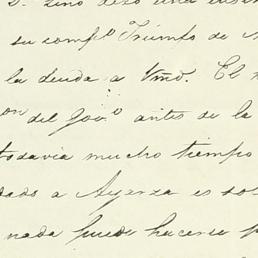 su comp.to Triunfo de
la deuda a Vmd. El
on del Gov.o antes de la
todavia mucho tiempo
dado a Ayerza es
nada puede hacerse